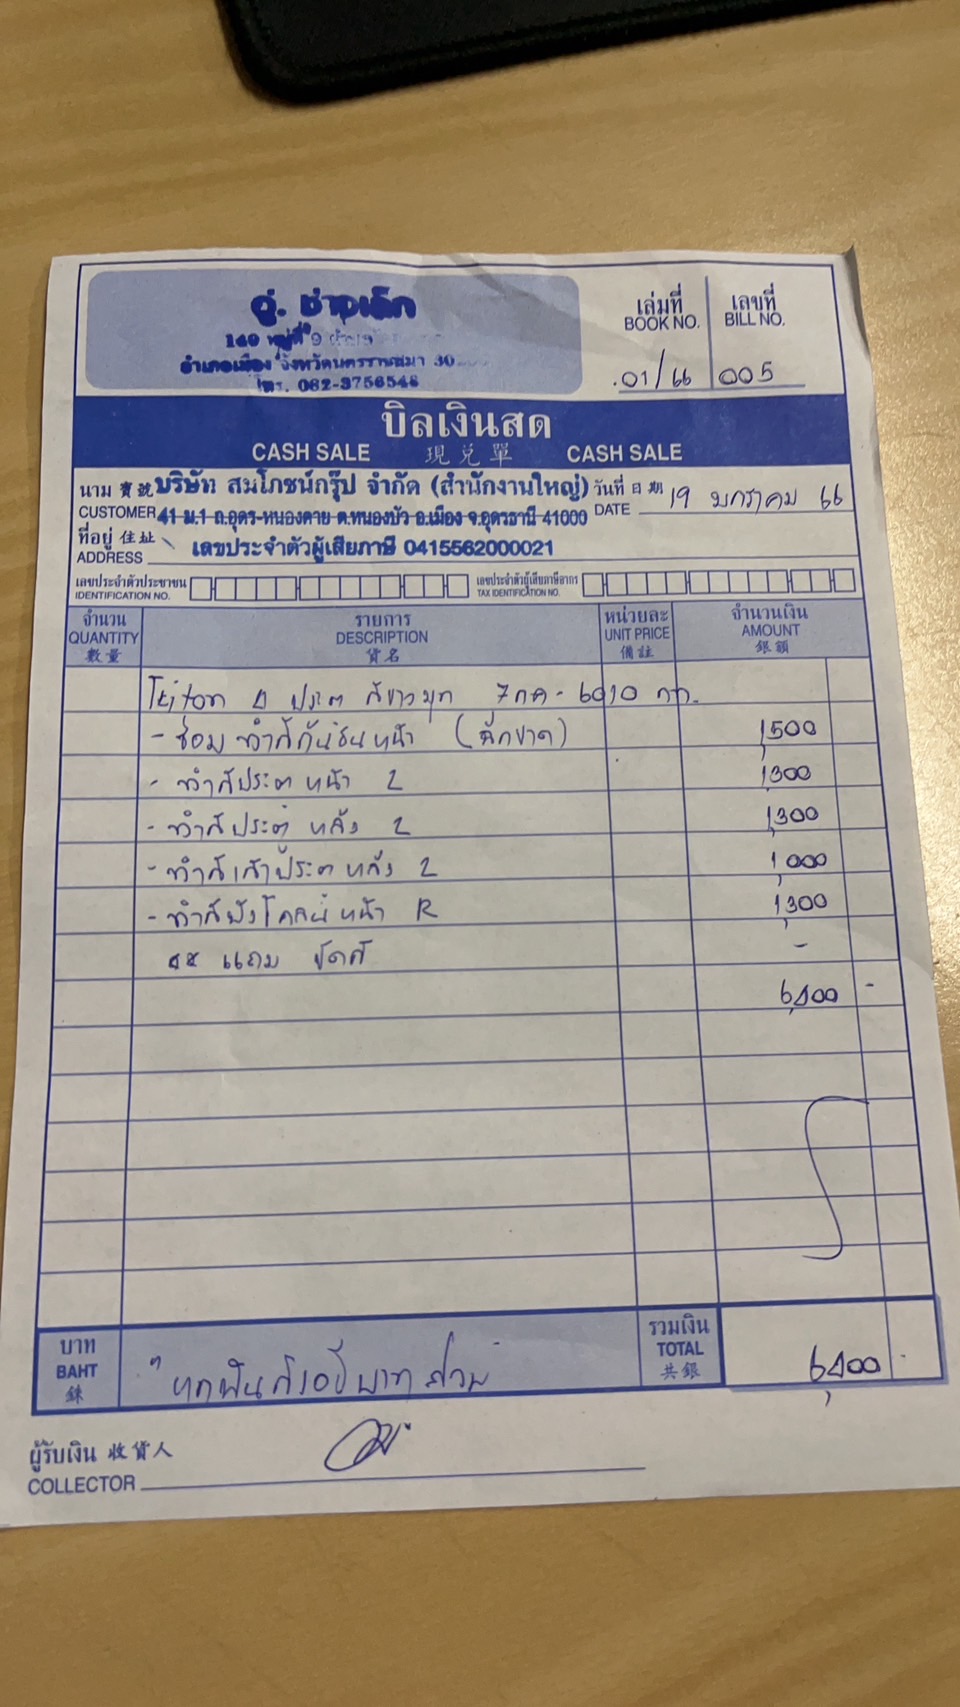 อู่. ช่างเล็ก
149 หมู่ที่ 9
อำเภอเมือง จังหวัดนครราชสีมา 30
โทร. 062-3756548
เล่มที่ เลขที่
BOOK NO. BILL NO.
01/66 005
บิลเงินสด
CASH SALE 現兌單 CASH SALE
นาม 寳號 บริษัท สมโภชน์กรุ๊ป จำกัด (สำนักงานใหญ่) วันที่ 日期 19 มกราคม 66
CUSTOMER 41 ม.1 ถ.อุดร-หนองคาย ต.หนองบัว อ.เมือง จ.อุดรธานี 41000 DATE
ที่อยู่ 住址 เลขประจำตัวผู้เสียภาษี 0415562000021
ADDRESS
เลขประจำตัวประชาชน เลขประจำตัวผู้เสียภาษีอากร
IDENTIFICATION NO. TAX IDENTIFICATION NO.
จำนวน รายการ หน่วยละ จำนวนเงิน
QUANTITY DESCRIPTION UNIT PRICE AMOUNT
數量 貨名 備註 銀額
Triton 4 ประตู สีขาวมุก 7กค-6010 กท.
- ซ่อม ทำสีกันชนหน้า (ฉีกขาด) 1,500
- ทำสีประตู หน้า L 1,300
- ทำสีประตู หลัง L 1,300
- ทำสีเสาประตู หลัง L 1,000
- ทำสีบังโคลนหน้า R 1,300
** แถม ขัดสี -
6,400 -
บาท รวมเงิน
BAHT หกพันสี่ร้อยบาทถ้วน TOTAL 6,400 -
銖 共銀
ผู้รับเงิน 收貨人
COLLECTOR